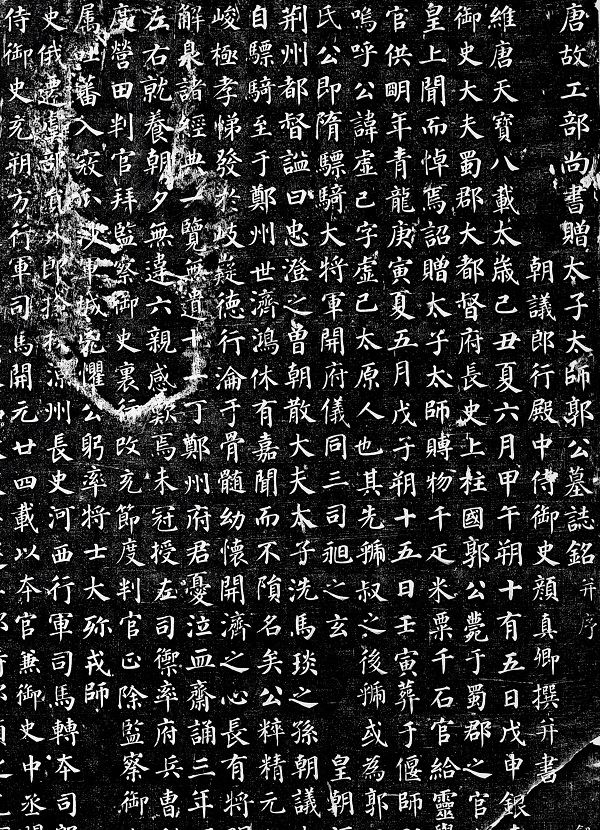 唐故工部尚書贈太子太師郭公墓誌銘并序
朝議郎行殿中侍御史顏真卿撰并書
維唐天寶八載太歲己丑夏六月甲午朔十有五日戊申銀
御史大夫蜀郡大都督府長史上柱國郭公薨于蜀郡之官
皇上聞而悼焉詔贈太子太師賻物千疋米粟千石官給靈轝
官供明年青龍庚寅夏五月戊子朔十五日壬寅葬于偃師
嗚呼公諱虛己字虛己太原人也其先虢叔之後虢或為郭
氏公即隋驃騎大將軍開府儀同三司昶之玄 皇朝
荊州都督謚曰忠澄之曾朝散大夫太子洗馬琰之孫朝議
自驃騎至于鄭州世濟鴻休有嘉聞而不隕名矣公粹精元
峻極孝悌發於岐嶷德行淪于骨髓幼懷開濟之心長有將
解泉諸經典一覽無遺十一丁鄭州府君憂泣血齋誦三年
左右就養朝夕無違六親感歎焉未冠授左司禦率府兵曹
度營田判官拜監察御史裏行改充節度判官正除監察御
属吐蕃入寇瓜沙軍城兇懼公躬率將士大殄戎師
史俄遷虞部員外郎檢校涼州長史河西行軍司馬轉本司郎
侍御史充朔方行軍司馬開元廿四載以本官兼御史中丞